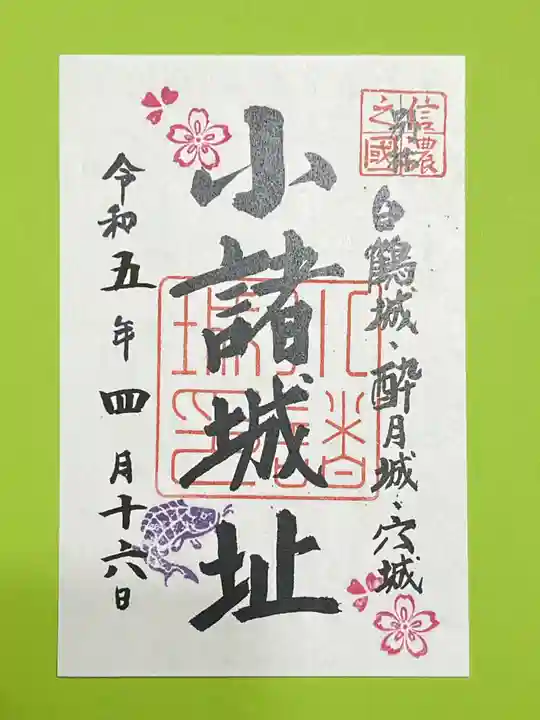 信濃
之國
別称 白鶴城、酔月城、穴城
小諸城址
令和五年四月十六日